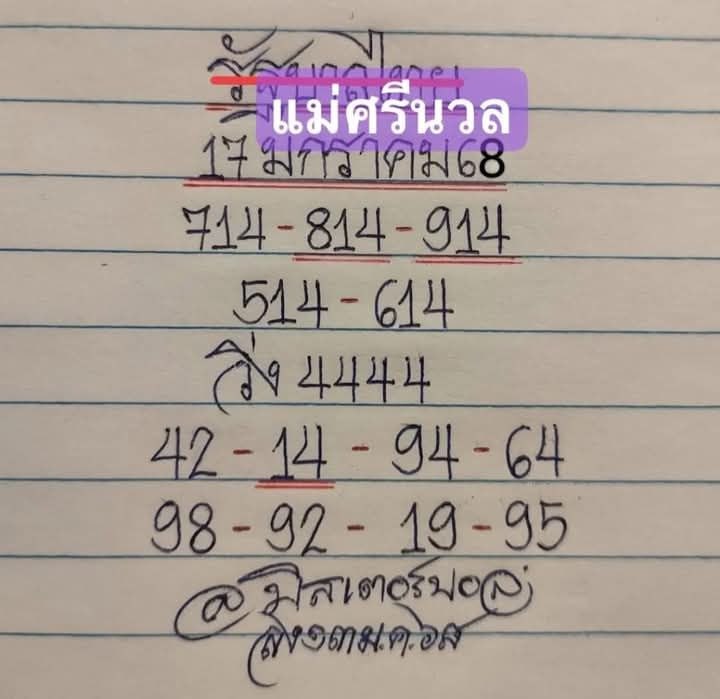 รัฐบาลไทย
แม่ศรีนวล
17 มกราคม 68
714 - 814 - 914
514 - 614
วิ่ง 4444
42 - 14 - 94 - 64
98 - 92 - 19 - 95
@มิสเตอร์บอล